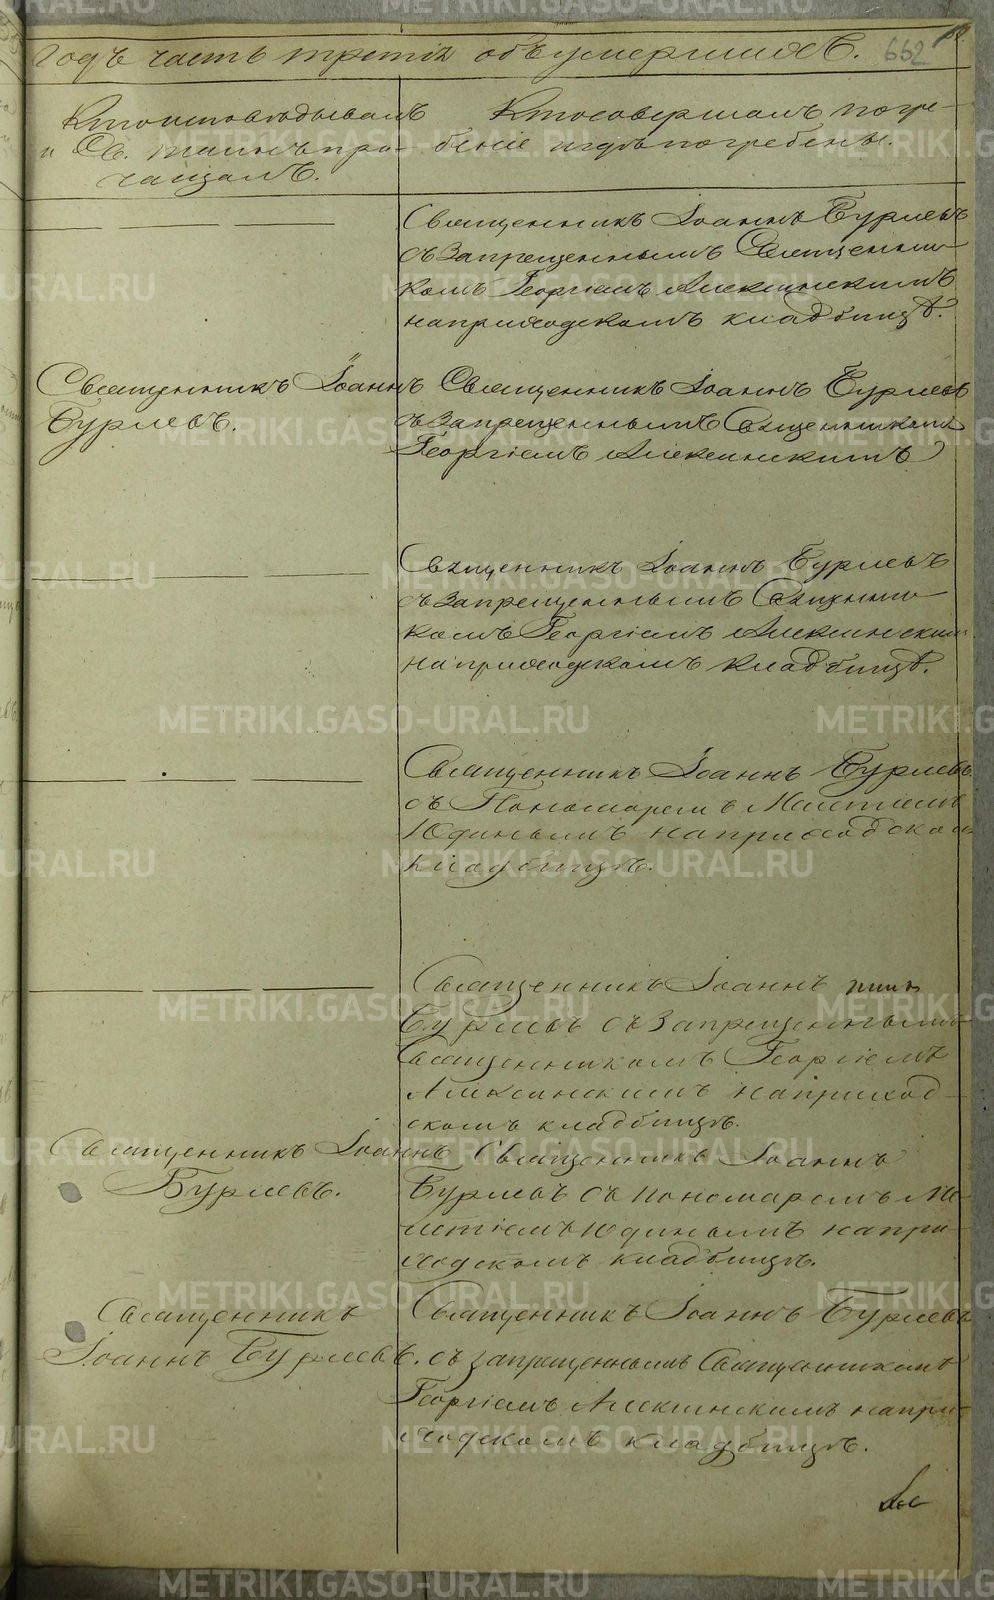 годъ часть третія объ умершихъ. 662
Кто исповѣдывалъ
и Св. таинъ прі-
чащалъ.
Кто совершалъ погре-
беніе и гдѣ погребены.
Священникъ Іоаннъ Бурлевъ
съ Запрещеннымъ Священни-
комъ Георгіемъ Алексинскимъ
на приходскомъ кладбищѣ.
Священникъ Іоаннъ
Бурлевъ.
Священникъ Іоаннъ Бурлевъ
съ Запрещеннымъ Священникомъ
Георгіемъ Алексинскимъ
Священникъ Іоаннъ Бурлевъ
съ Запрещеннымъ Священни-
комъ Георгіемъ Алексинским
на приходскомъ кладбищѣ.
Священникъ Іоаннъ Бурлевъ
съ Пономаремъ Мелетіемъ
Юдинымъ на приходском
кладбищѣ.
Священникъ Іоаннъ
Бурлевъ съ Запрещеннымъ
Священникомъ Георгіемъ
Алексинскимъ на приход-
скомъ кладбищѣ.
Священникъ Іоаннъ
Бурлевъ.
Священникъ Іоаннъ
Бурлевъ съ Пономаремъ Ме-
летіемъ Юдинымъ на при-
ходскомъ кладбищѣ.
Священникъ
Іоаннъ Бурлевъ.
Священникъ Іоаннъ Бурлевъ
съ запрещеннымъ Священникомъ
Георгіемъ Алексинскимъ на при-
ходскомъ кладбищѣ.
METRIKI.GASO-URAL.RU